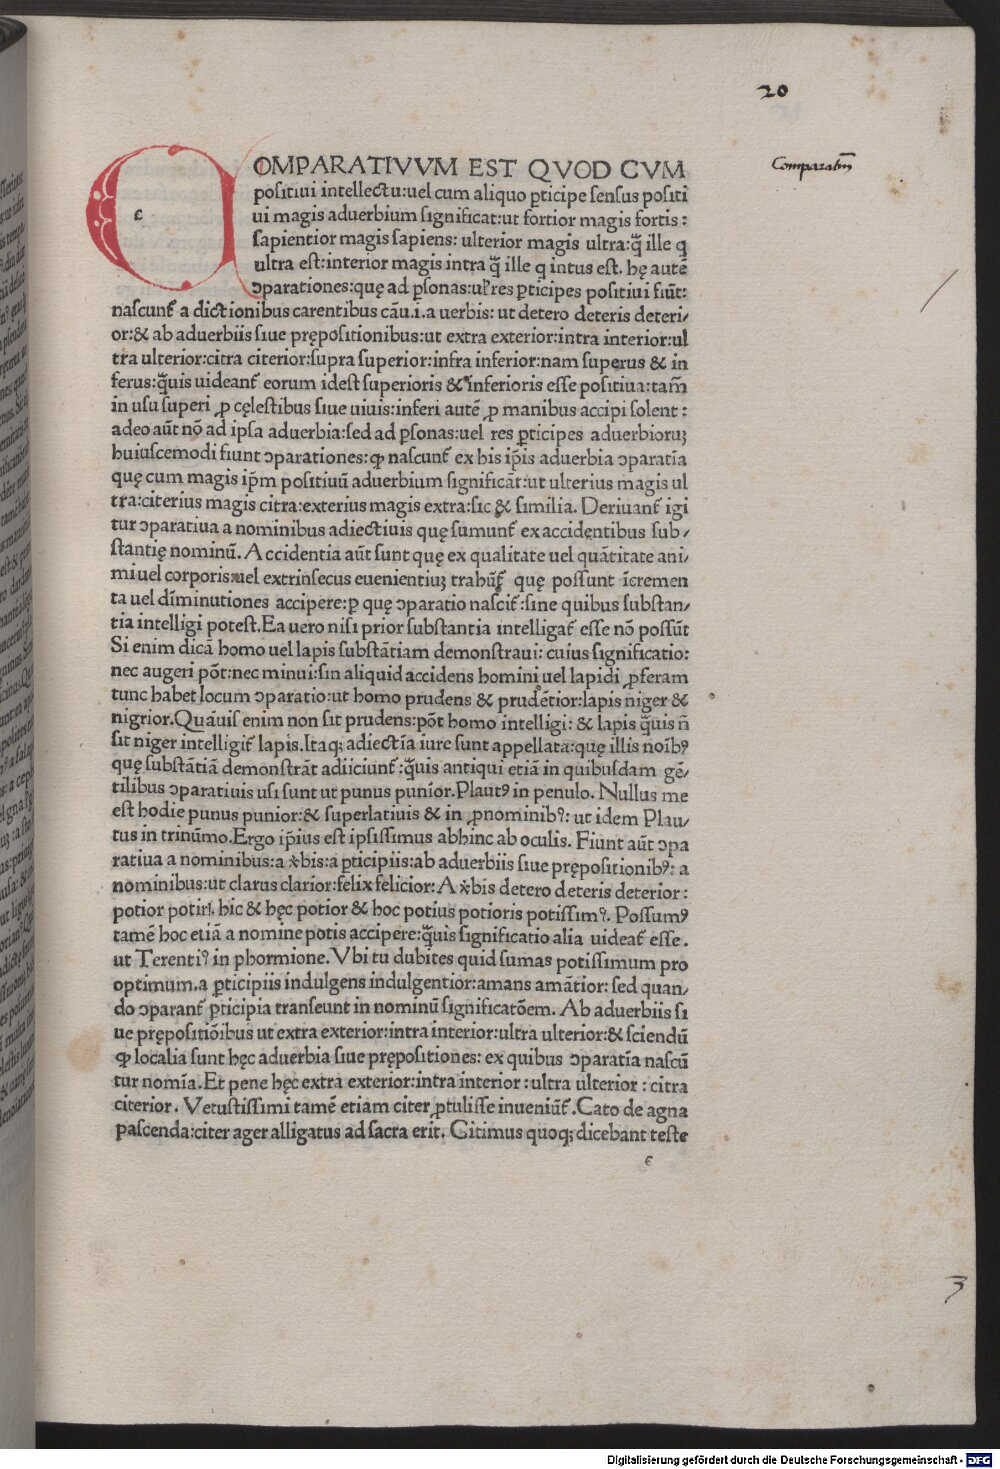 20
COMPARATIVVM EST QVOD CVM
Comparatiuũ
positiui intellectu:uel cum aliquo ꝑticipe ſenſus poſiti
ui magis aduerbium ſignificat:ut fortior magis fortis:
ſapientior magis ſapiens: ulterior magis ultra:q̃ ille q
ultra eſt:interior magis intra q̃ ille q intus eſt. hę autẽ
ↄparationes:quę ad ꝑſonas:uꝉ res ꝑticipes poſitiui fiũt:
naſcunt᷑ a dictionibus carentibus cãu.i.a uerbis: ut detero deteris deteri⸗
or:& ab aduerbiis ſiue prępoſitionibus:ut extra exterior:intra interior:ul
tra ulterior:citra citerior:ſupra ſuperior:infra inferior:nam ſuperus & in
ferus:q̃uis uideant᷑ eorum ideſt ſuperioris & inferioris eſſe poſitiua:tam̃
in uſu ſuperi ꝓ cęleſtibus ſiue uiuis:inferi autẽ ꝓ manibus accipi ſolent:
adeo aũt nõ ad ipſa aduerbia:ſed ad ꝑſonas:uel res ꝑticipes aduerbioruꝫ
huiuſcemodi fiunt ↄparationes:ꝙ naſcunt᷑ ex his ip̃is aduerbia ↄparatĩa
quę cum magis ip̃m poſitiuũ aduerbium ſignificãt:ut ulterius magis ul
tra:citerius magis citra:exterius magis extra:ſic & ſimilia. Deriuant᷑ igi
tur ↄparatiua a nominibus adiectiuis quę ſumunt᷑ ex accidentibus ſub⸗
ſtantię nominũ. Accidentia aũt ſunt quę ex qualitate uel quãtitate ani⸗
mi uel corporis:uel extrinſecus euenientiuꝫ trahũt᷑ quę poſſunt ĩcremen
ta uel dĩminutiones accipere:ꝑ quę ↄparatio naſcit᷑:ſine quibus ſubſtan⸗
tia intelligi poteſt.Ea uero niſi prior ſubſtantia intelligat᷑ eſſe nõ poſſũt
Si enim dicã homo uel lapis ſubſtãtiam demonſtraui: cuius ſignificatio:
nec augeri põt:nec minui:ſin aliquid accidens homini uel lapidi ꝓferam
tunc habet locum ↄparatio:ut homo prudens & prudẽtior:lapis niger &
nigrior.Quãuis enim non ſit prudens:põt homo intelligi: & lapis q̃uis ñ
ſit niger intelligit᷑ lapis.Itaqꝫ adiectĩa iure ſunt appellata:quę illis noĩbꝰ
quę ſubſtãtiã demonſtrãt adiiciunt᷑:q̃uis antiqui etiã in quibuſdam gẽ⸗
tilibus ↄparatiuis uſi ſunt ut punus punĩor.Plautꝰ in penulo. Nullus me
eſt hodie punus punior:& ſuperlatiuis & in ꝓnominibꝰ: ut idem Plau⸗
tus in trinũmo.Ergo ip̃ius eſt ipſiſſimus abhinc ab oculis. Fiunt aũt ↄpa
ratiua a nominibus:a ꝟbis:a ꝑticipiis:ab aduerbiis ſiue prępoſitionibꝰ: a
nominibus:ut clarus clarior:felix felicior:A ꝟbis detero deteris deterior:
potior potirꝭ hic & hęc potior & hoc potius potioris potiſſimꝰ. Poſſumꝰ
tamẽ hoc etiã a nomine potis accipere:q̃uis ſignificatio alia uideat᷑ eſſe.
ut Terentiꝰ in phormione. Vbi tu dubites quid ſumas potiſſimum pro
optimum.a ꝑticipiis indulgens indulgentior:amans amãtior: ſed quan⸗
do ↄparant᷑ ꝑticipia tranſeunt in nominũ ſignificatõem. Ab aduerbiis ſi
ue prępoſitiõibus ut extra exterior:intra interior:ultra ulterior:& ſciendũ
ꝙ localia ſunt hęc aduerbia ſiue prępoſitiones: ex quibus ↄparatĩa naſcũ
tur nomĩa. Et pene hęc extra exterior:intra interior:ultra ulterior: citra
citerior. Vetuſtiſſimi tamẽ etiam citer ꝓtuliſſe inueniũt᷑.Cato de agna
paſcenda:citer ager alligatus ad ſacra erit. Citimus quoqꝫ dicebant teſte
c
3
Digitalisierung gefördert durch die Deutsche Forschungsgemeinschaft - DFG